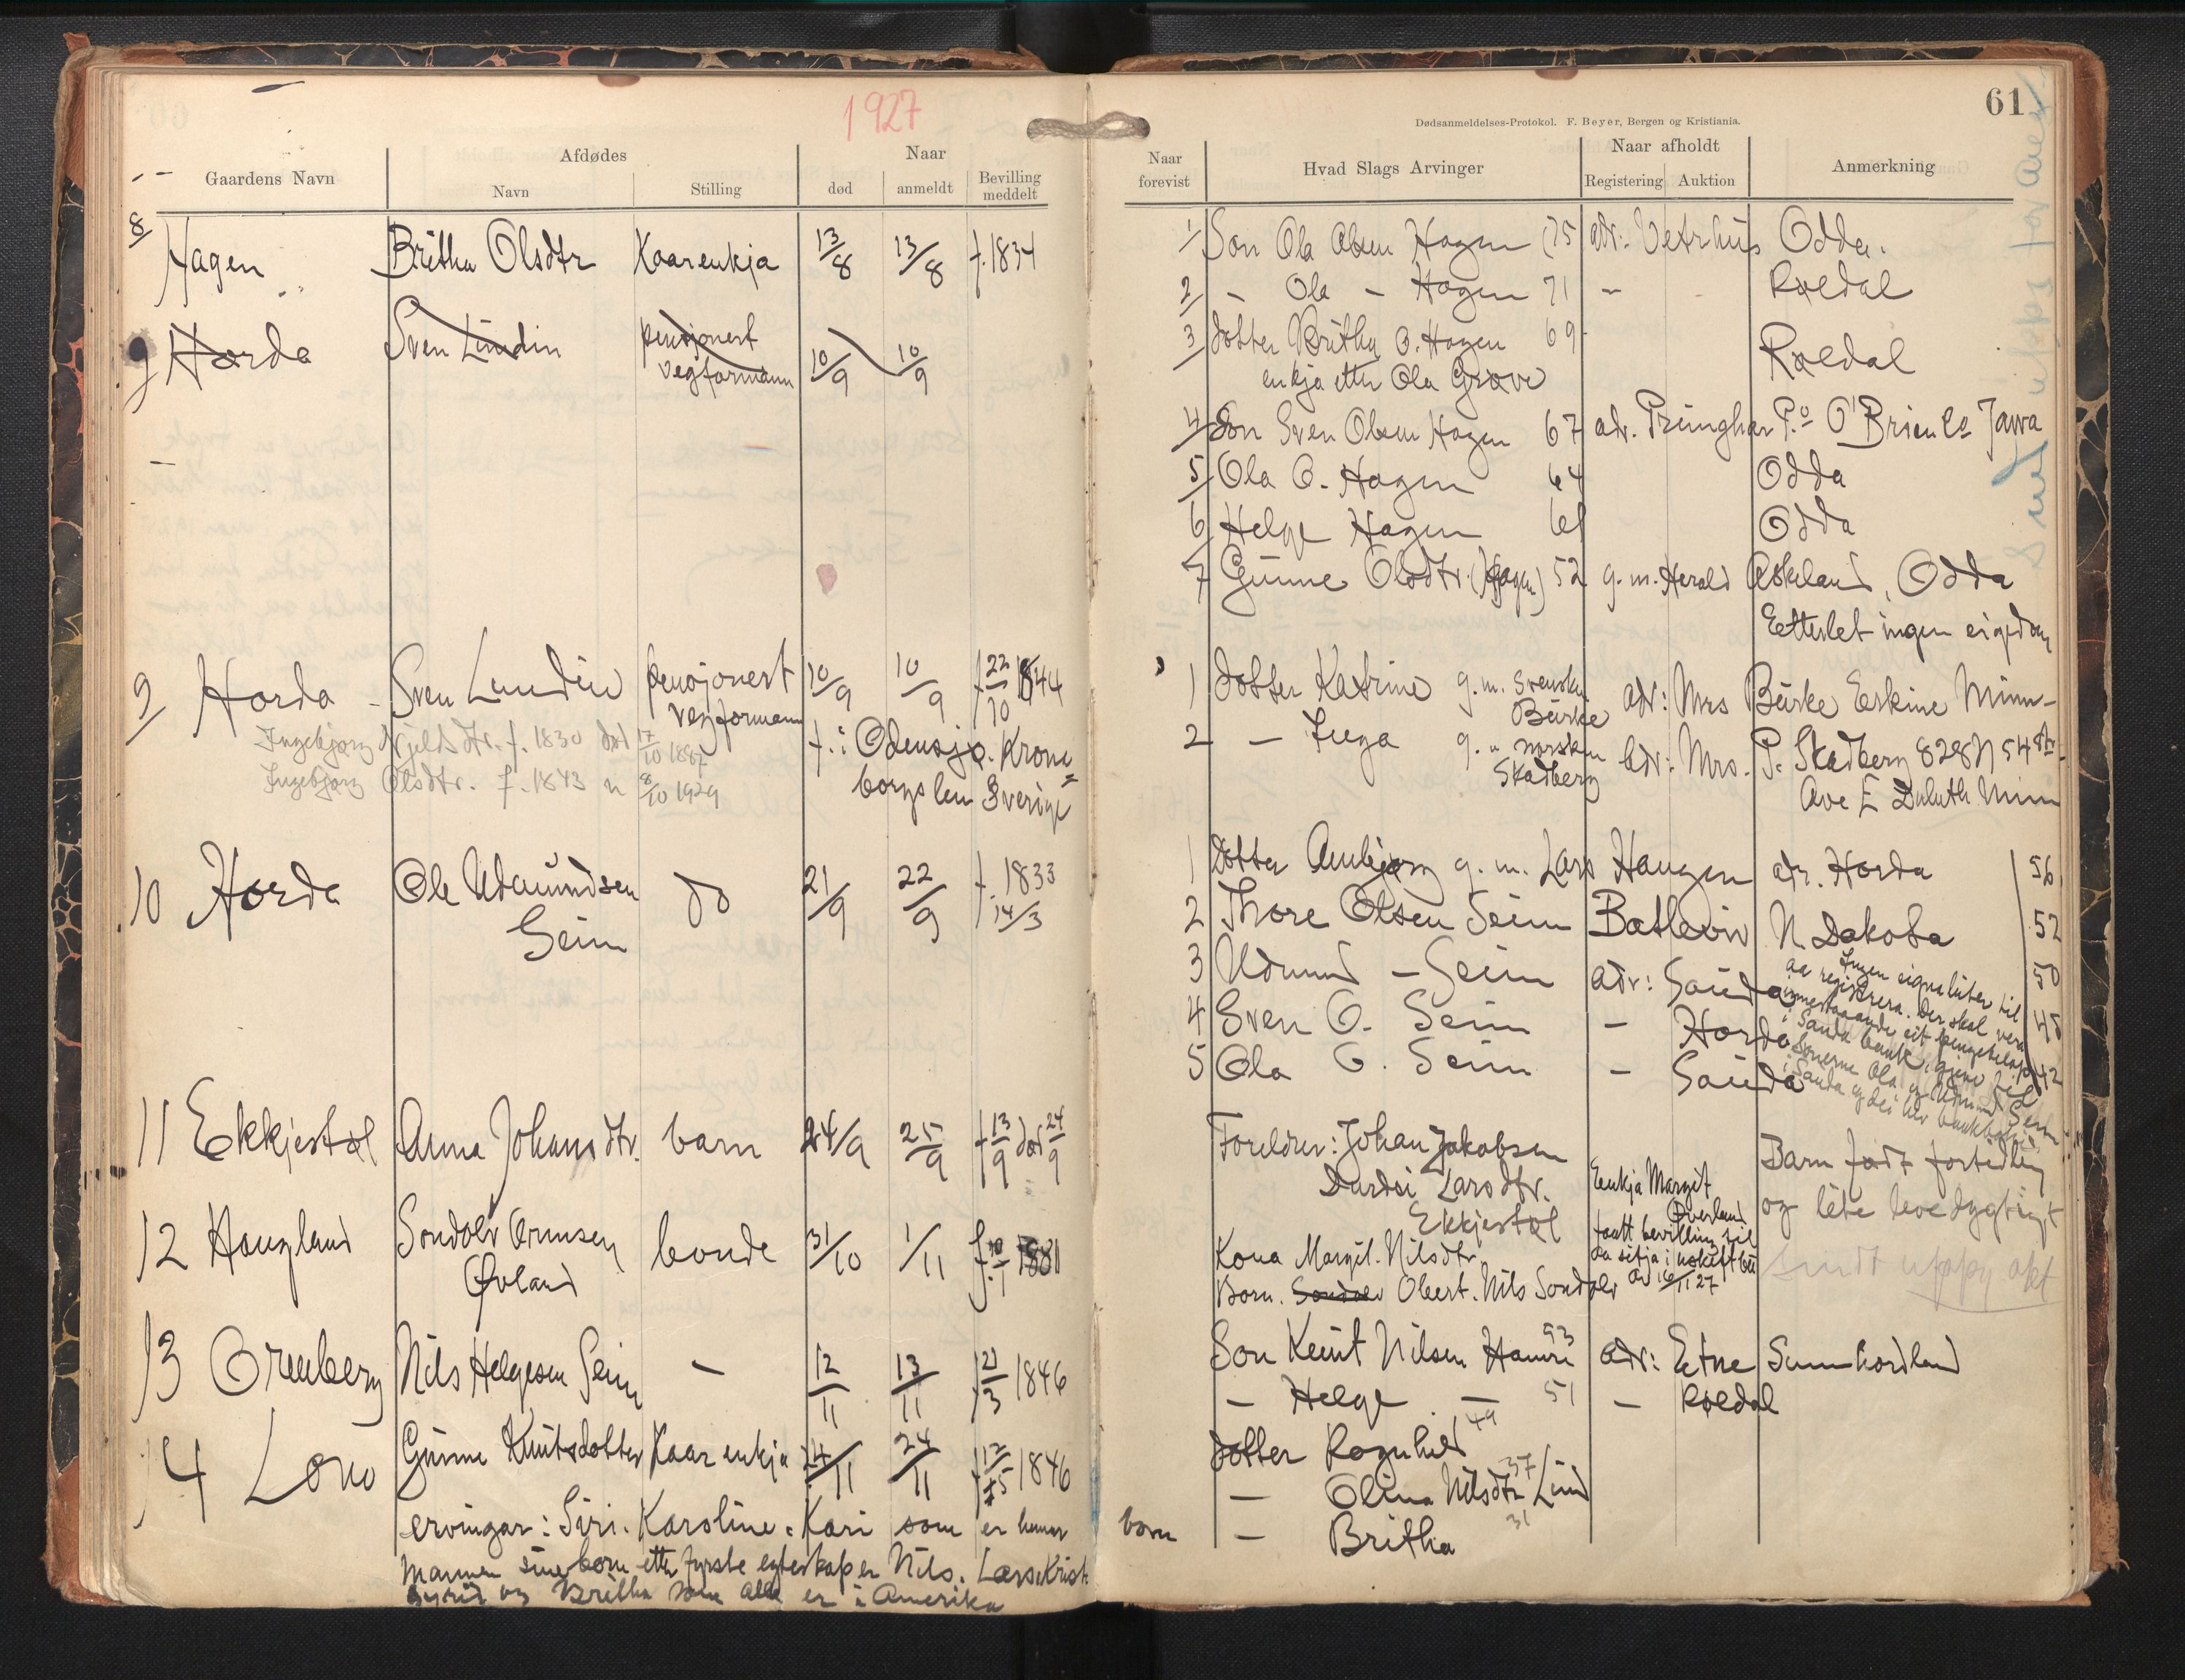 1927
61
Dødsanmeldelses-Protokol. F. Beyer, Bergen og Kristiania.
Gaardens Navn
Afdødes
Navn
Stilling
Naar
død
anmeldt
Bevilling meddelt
Naar forevist
Hvad Slags Arvinger
Naar afholdt
Registering
Auktion
Anmerkning
8 Hagen Britha Olsdtr Kaarenkja 13/8 13/8 f. 1834
9 Horda Sven Lundin pensjonert
vegformann 10/9 10/9
9 Horda - Sven Lundin pensjonert 10/9 10/9 f 22/10 1844
vegformann
f. i Odensjø. Krono=
borgs len Sverige
Ingebjørg Kjelsdtr. f. 1830 død 17/10 1887
Ingebjørg Olsdtr. f. 1843 8/10 1929
10 Horda Ole Udmundsen do 21/9 22/9 f. 1833
Seim 14/3
11 Ekkjestøl Anna Johansdtr. barn 24/9 25/9 f 13/9 død 24/9
12 Haugland Sondolv Ormsen bonde 31/10 1/11 f. 1881
Øvland
13 Grenberg Nils Helgesen Seim - 12/11 13/11 f 21/3 1846
14 Lono Gunne Knutsdotter Kaarenkja 24/11 24/11 f 12/5 1846
ervingar: Siri. Karoline. Kari som er hennar born
Mannen sine born etter fyrste egteskap er Nils. Lars. Krist.
og Britha som alle er i Amerika
1 Son Ola Olsen Hagen 75 adr: Vetrhus Odda.
2 - Ola - Hagen 71 - Røldal
3 dotter Britha O. Hagen 69
enkja etter Ola Grøve Røldal
4 Son Sven Olsen Hagen 67 adr. Primghar P.o O'Brien Co Jowa
5 Ola O. Hagen 64 Odda
6 Helge Hagen 61 Odda
7 Gunne Olsdtr. (Hagen) 52 g. m. Herald Askeland, Odda
Etterlet ingen eigedom
1 Dotter Katrine g. m. svensken
Burke adr: Mrs Burke Erskine Minn-
2 - Inga g. m. norsken
Skadberg adr: Mrs. P. Skadberg 828 N 54 str.
Ave E Duluth Minn
1 Dotter Ambjørg g. m. Lars Haugen adr. Horda 56
2 Thore Olsen Seim N. Dakota 52
3 Udmund - Seim adr: Sauda 50
4 Sven O. Seim - Horda 45
5 Ola O. Seim - Sauda 42
Ingen eignaluter til
aa registrera. Der skal vera
innestaaande eit pengebeløp
i Sauda bank, hjeme hjå
sønerne Ola og Udmund Seim
i Sauda og dei hev bankboki
Foreldre: Johan Jakobsen
Durdei Larsdtr.
Ekkjestøl
Barn født fortidlig
og lite levedygtigt
Kona Margit. Nilsdtr.
Born. Sondolv Olbert. Nils Sondolv
Enkja Margit
Øverland
faatt bevilling til
aa sitja i uskift bu
av 16/11 27
Son Knut Nilsen Hamre 53 adr: Etne Sunnhordland
- Helge - 51 - Røldal
dotter Ragnhild 49
- Olina Nilsdtr Lund 37
- Britha 31